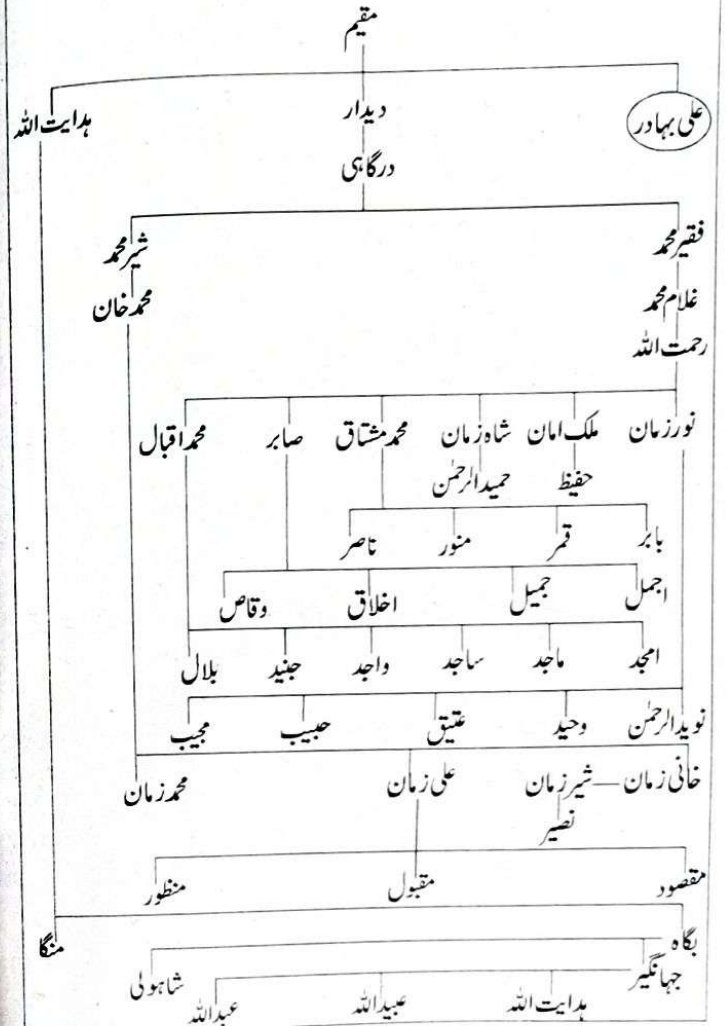 مقیم
علی بہادر دیدار ہدایت اللہ
درگاہی
فقیر محمد شیر محمد
غلام محمد محمد خان
رحمت اللہ
نور زمان ملک امان شاہ زمان محمد مشتاق صابر محمد اقبال
حفیظ حمید الرحمٰن
بابر قمر منور ناصر
اجمل جمیل اخلاق وقاص
امجد ماجد ساجد واجد جنید بلال
نوید الرحمٰن وحید عتیق حبیب مجیب
خانی زمان — شیر زمان علی زمان محمد زمان
نصیر
مقصود مقبول منظور
بگاہ منگا
جہانگیر شاہولی
ہدایت اللہ عبید اللہ عبد اللہ